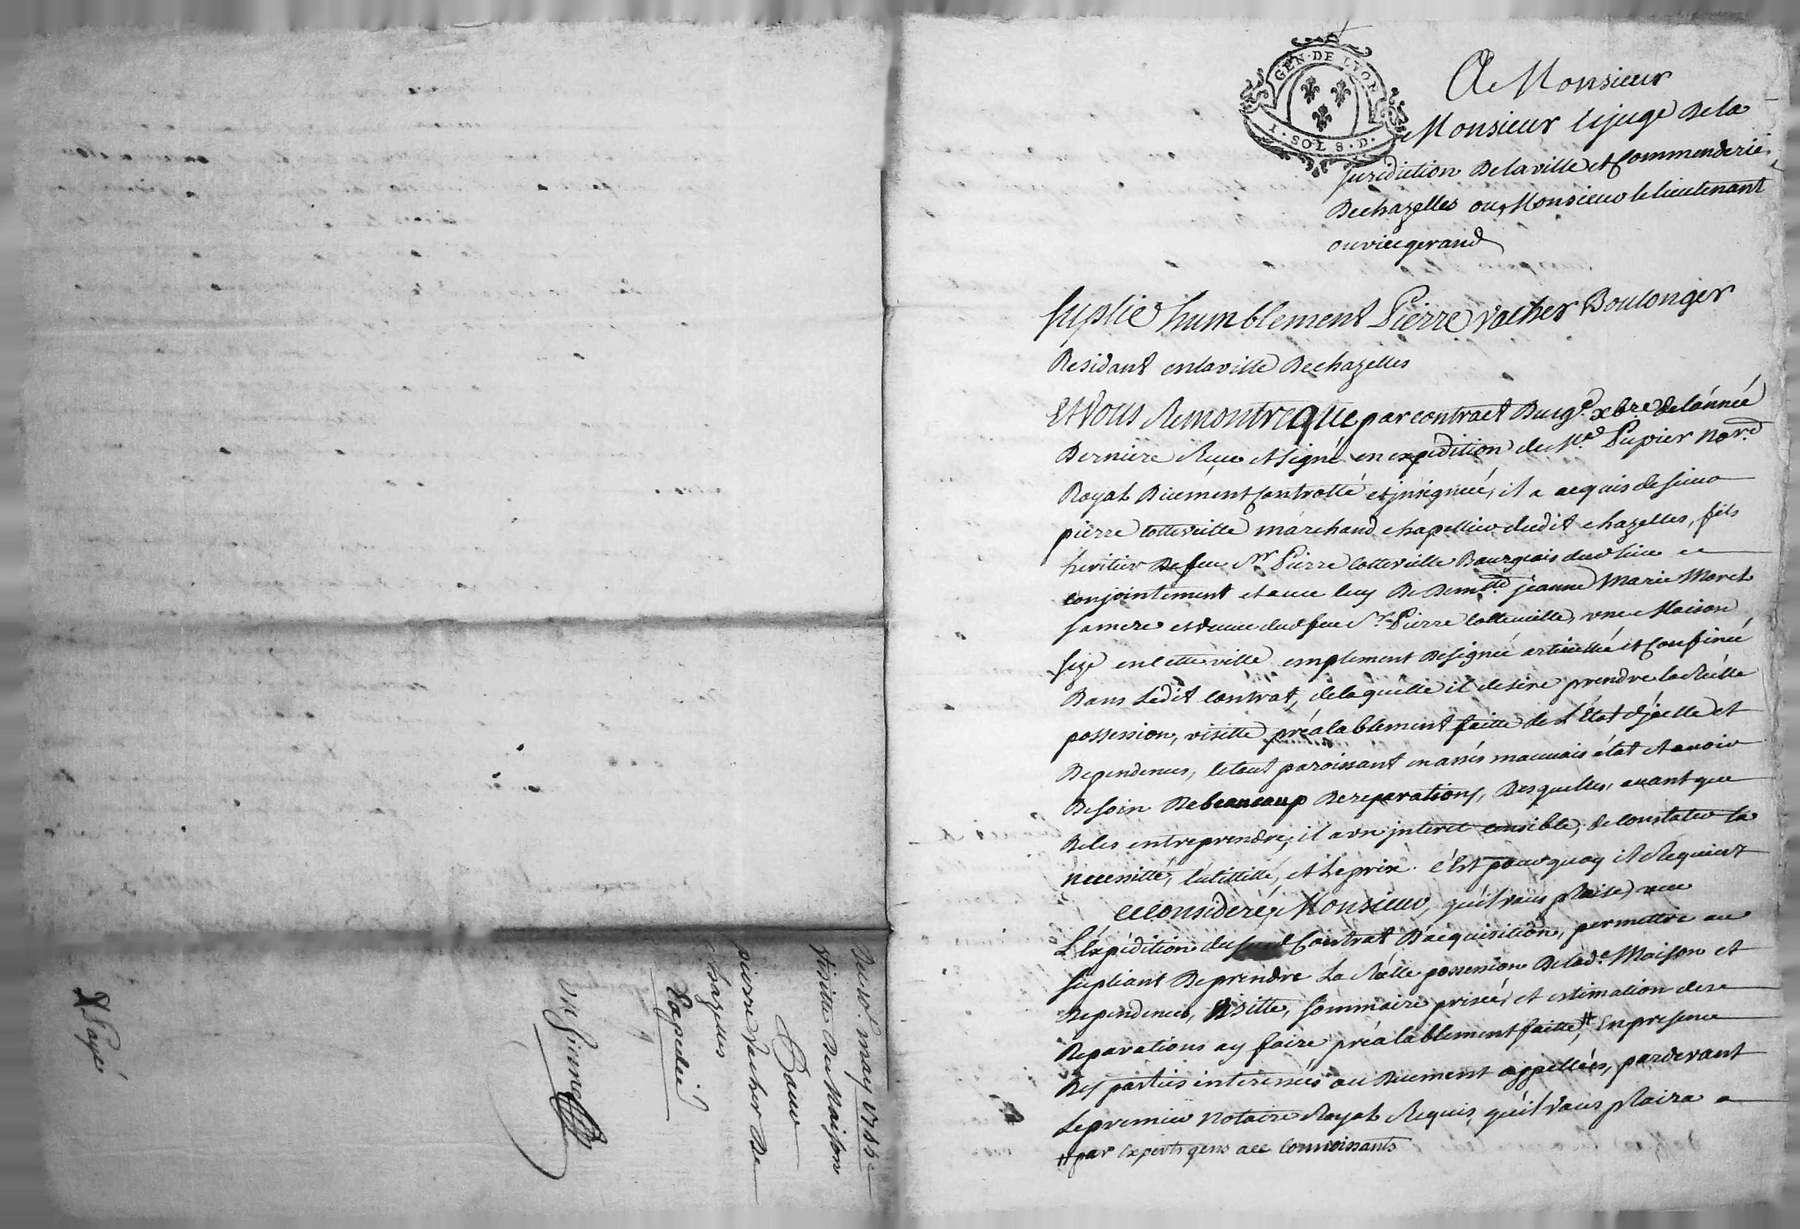 GEN. DE LYON
1. SOL 8. D.
A Monsieur
Monsieur le juge de la
juridiction de la ville et Commenderie
de chazelles ou Monsieur le lieutenant
ou vice gerand
Suplie humblement Pierre vacher Boulonger
Residant en la ville de chazelles
Et vous Remontre que par contract du 19e xbre de lánnée
derniere Reçu et signé en expedition de Me Pupier Nore
Royal duement Controllé et jnsignué, il a acquis de sieur
pierre cotteville marchand chapellier dudit chazelles, fils
heritier de feu Sr Pierre cotteville Bourgeois dud lieu
conjointement et avec luy de Demlle jeanne Marie Morel
sa mere et veuve dud feu Sr Pierre Cotteville, une Maison
size en cette ville emplement designée articullée et Confinée
dans Ledit Contrat, de laquelle il desire prendre la Réelle
possession, visitte préalablement faitte de L'état d'jcelle et
dependences, le tout paroissant en assés mauvais état et avoir
Besoin de beaucoup de reparations, desquelles, avant que
de les entreprendre, il a un jnteret sensible, de constater la
necessitté, L'utillité, et le prix. c'est pourquoy il Requiert
ce consideré, Monsieur, qu'il vous plaise, veu
L'éxpédition du Contrat d'acquisition, permettre au
supliant de prendre La Réelle possession de lade Maison et
dependences, visitte, sommaire prisée, et estimation des
Reparations a y faire préalablement faitte,# En presence
des parties interessées ou duement appellées, pardevant
Le premier Notaire Royal Requis, qu'il vous plaira
# par Experts gens a ce connoissants
may 1766
visitte de Maison
Pour
pierre vacher de
chazelles
Expedié
Payé